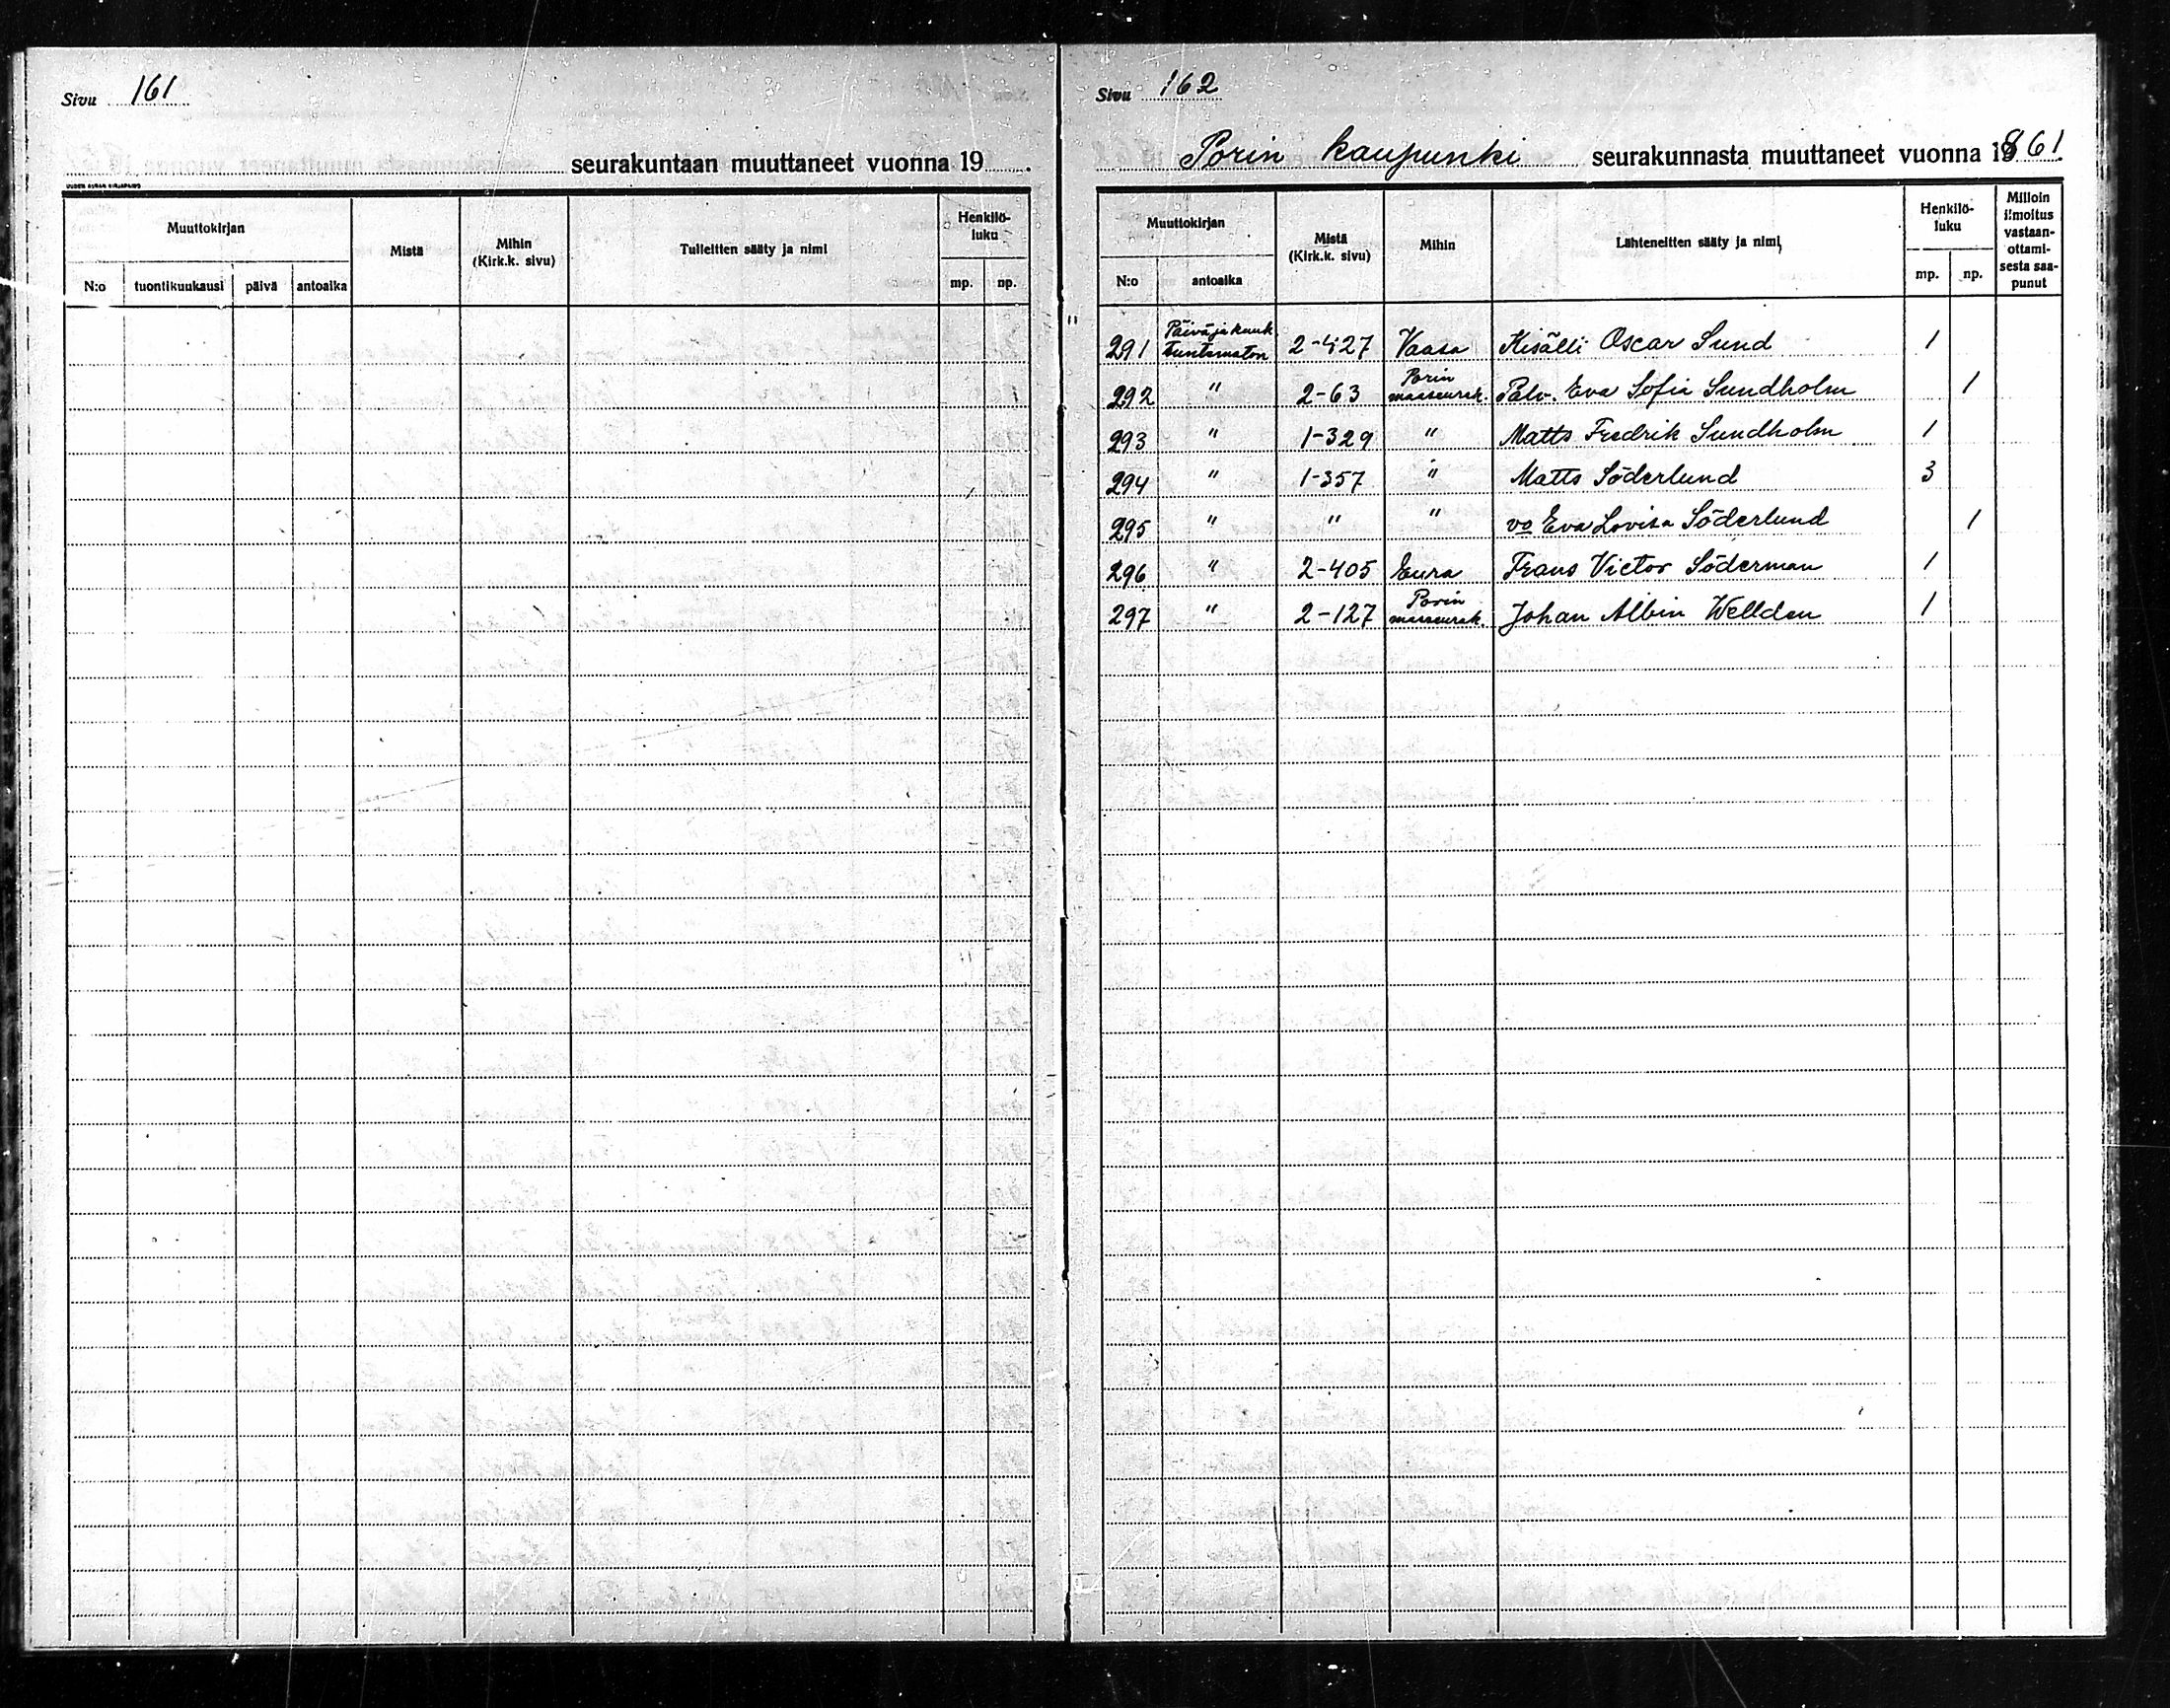 Sivu 161
seurakuntaan muuttaneet vuonna 19
UUDEN AURAN KIRJAPAINO
Muuttokirjan Mistä Mihin (Kirk.k. sivu) Tulleitten sääty ja nimi Henkilö-luku
N:o tuontikuukausi päivä antoaika mp. np.
Sivu 162
Porin kaupunki seurakunnasta muuttaneet vuonna 1861.
Muuttokirjan Mistä (Kirk.k. sivu) Mihin Lähteneitten sääty ja nimi Henkilö-luku Milloin ilmoitus vastaan-ottami-sesta saa-punut
N:o antoaika mp. np.
291 Päivä ja kuuk. tuntematon 2-427 Vaasa Kisälli Oscar Sund 1
292 " 2-63 Porin maaseurak. Palv. Eva Sofia Sundholm 1
293 " 1-329 " Matts Fredrik Sundholm 1
294 " 1-357 " Matts Söderlund 3
295 " " " vo Eva Lovisa Söderlund 1
296 " 2-405 Eura Frans Victor Söderman 1
297 " 2-127 Porin maaseurak. Johan Albin Wellden 1